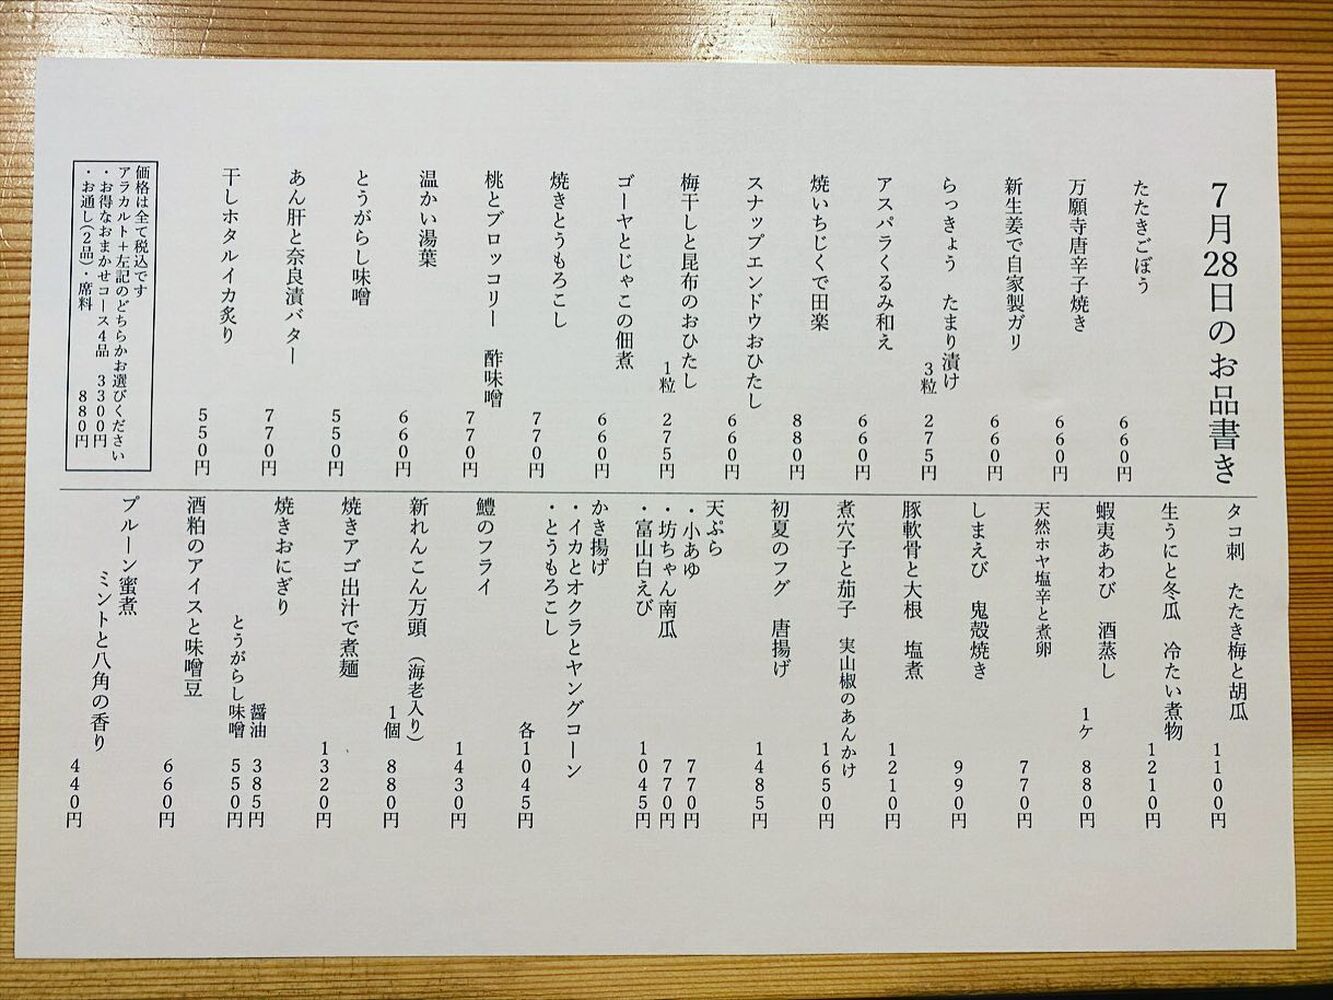 7月28日のお品書き
たたきごぼう
660円
万願寺唐辛子焼き
660円
新生姜で自家製ガリ
660円
らっきょう　たまり漬け
3粒　275円
アスパラくるみ和え
660円
焼いちじくで田楽
880円
スナップエンドウおひたし
660円
梅干しと昆布のおひたし
1粒　275円
ゴーヤとじゃこの佃煮
660円
焼きとうもろこし
770円
桃とブロッコリー　酢味噌
770円
温かい湯葉
660円
とうがらし味噌
550円
あん肝と奈良漬バター
770円
干しホタルイカ炙り
550円
価格は全て税込です
アラカルト＋左記のどちらかお選びください
・お得なおまかせコース4品　3300円
・お通し（2品）・席料　880円
タコ刺　たたき梅と胡瓜
1100円
生うにと冬瓜　冷たい煮物
1210円
蝦夷あわび　酒蒸し
1ケ　880円
天然ホヤ塩辛と煮卵
770円
しまえび　鬼殻焼き
990円
豚軟骨と大根　塩煮
1210円
煮穴子と茄子　実山椒のあんかけ
1650円
初夏のフグ　唐揚げ
1485円
天ぷら
・小あゆ　770円
・坊ちゃん南瓜　770円
・富山白えび　1045円
かき揚げ
・イカとオクラとヤングコーン
・とうもろこし
各1045円
鱧のフライ
1430円
新れんこん万頭（海老入り）
1個　880円
焼きアゴ出汁で煮麺
1320円
焼きおにぎり
醤油　385円
とうがらし味噌　550円
酒粕のアイスと味噌豆
660円
プルーン蜜煮
ミントと八角の香り
440円